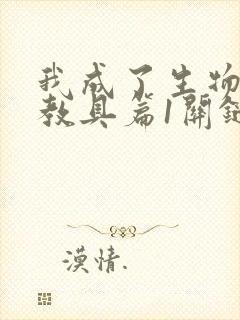 我成了生物
教具篇1關鍵
漠情.